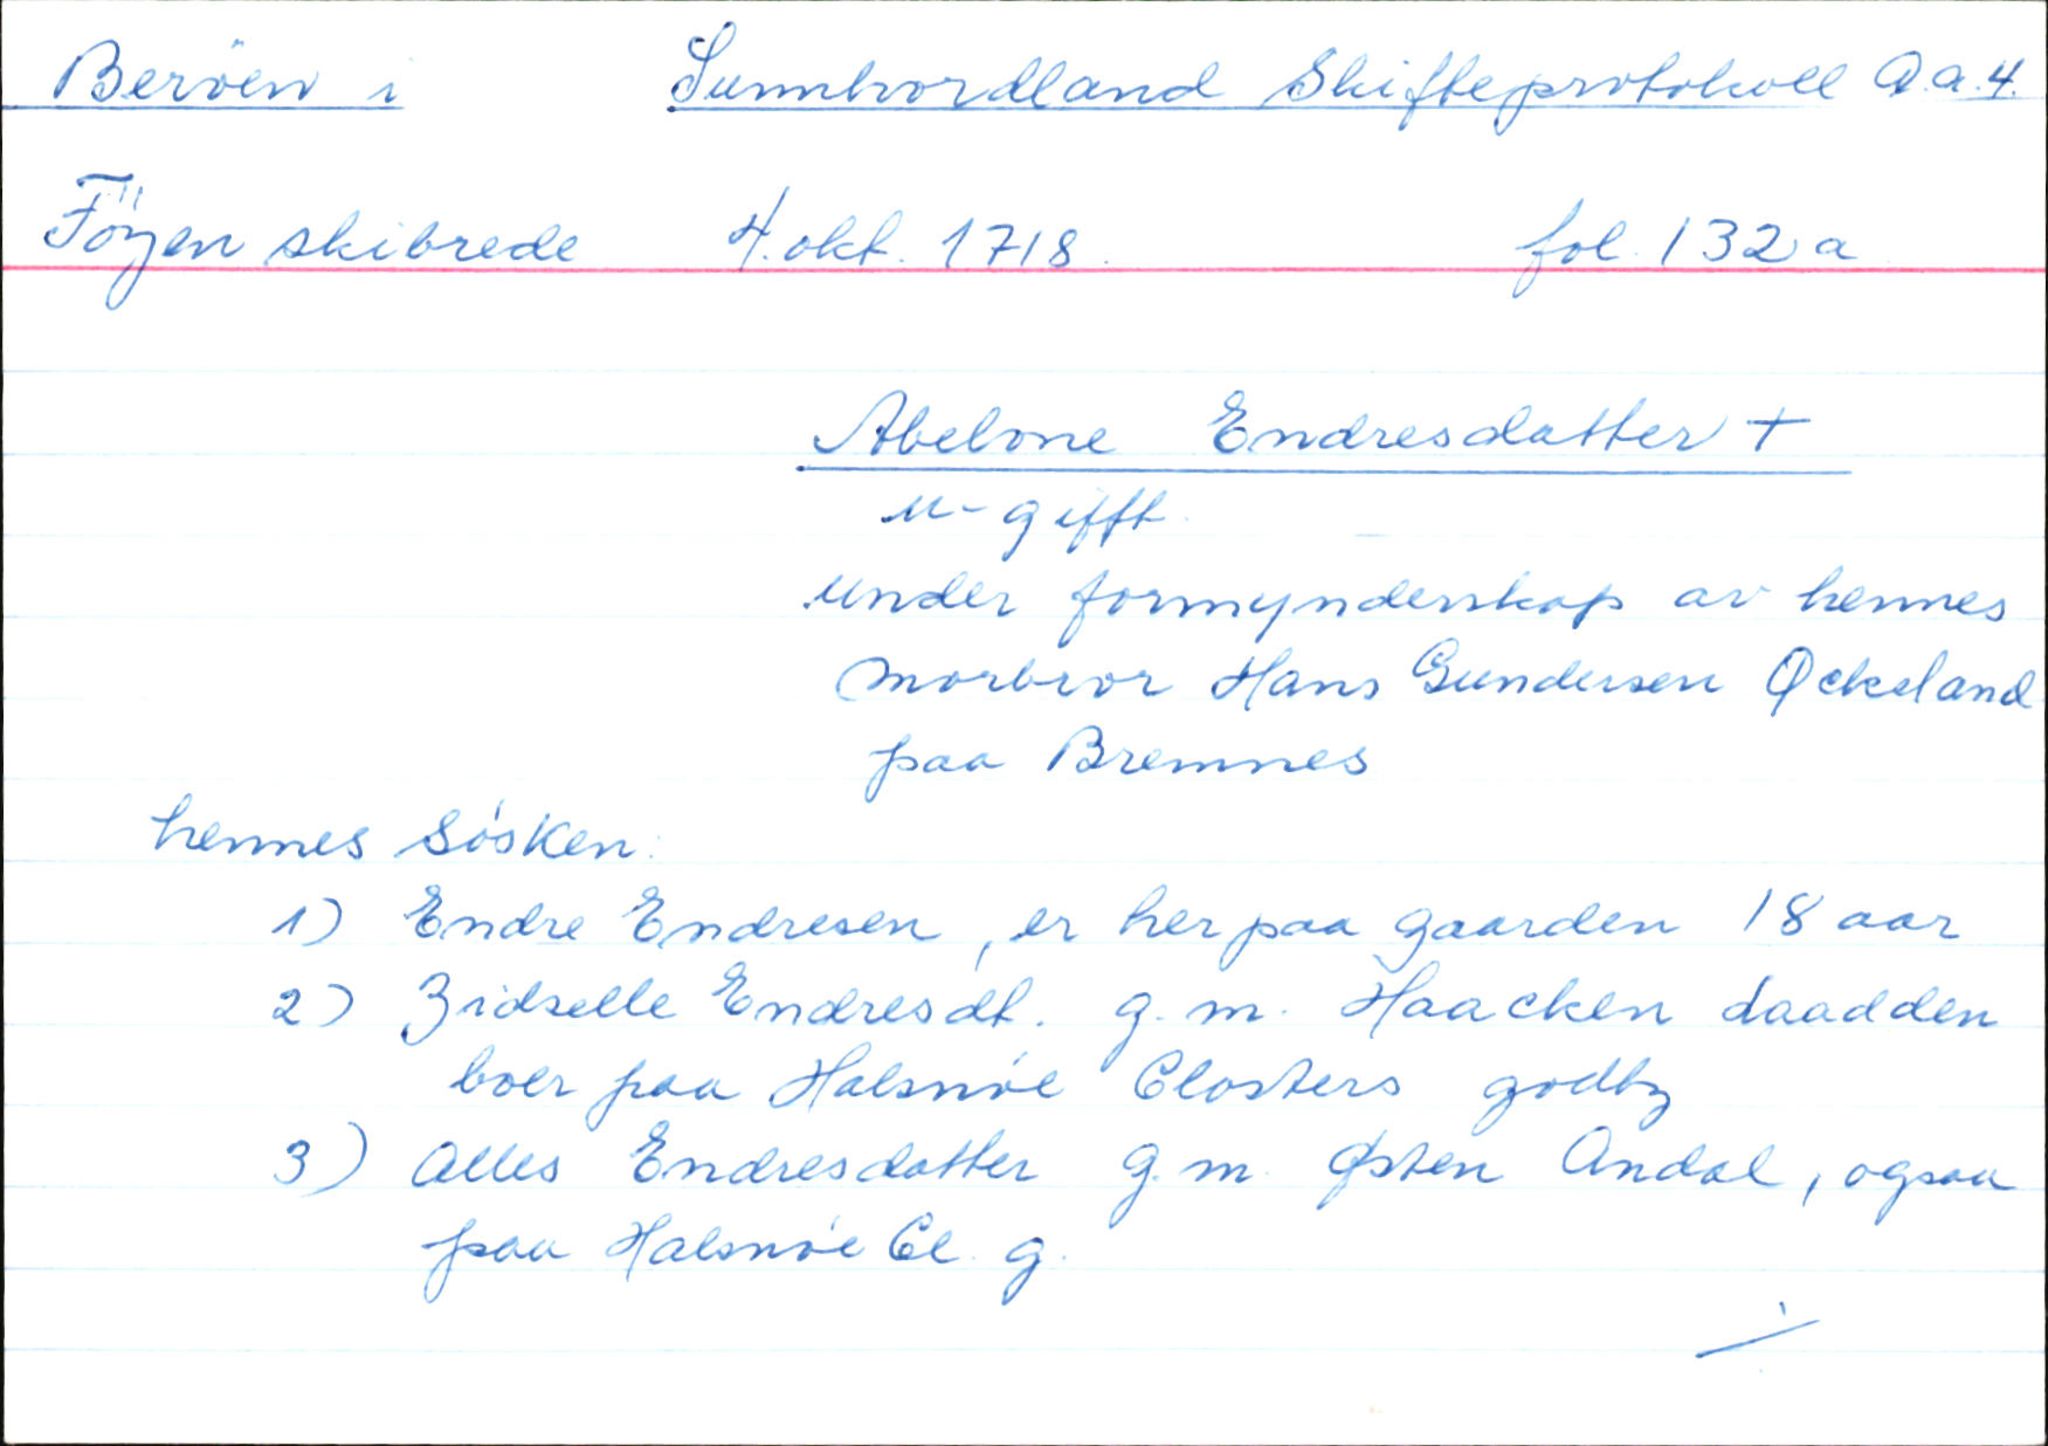 Beröen i Sunnhordland Skifteprotokoll A.a.4.
Föyen skibrede 4. okt. 1718. fol. 132 a
Abelone Endresdatter +
u-gifft.
under formynderskap av hennes
morbror Hans Gundersen Øckeland
paa Bremnes
hennes søsken:
1) Endre Endresen, er her paa gaarden 18 aar
2) Zidselle Endresdt. g.m. Haacken daadden
boer paa Halsnøe Closters godtz
3) Alles Endresdatter g.m. Østen Andal, ogsaa
paa Halsnøe Cl. g.